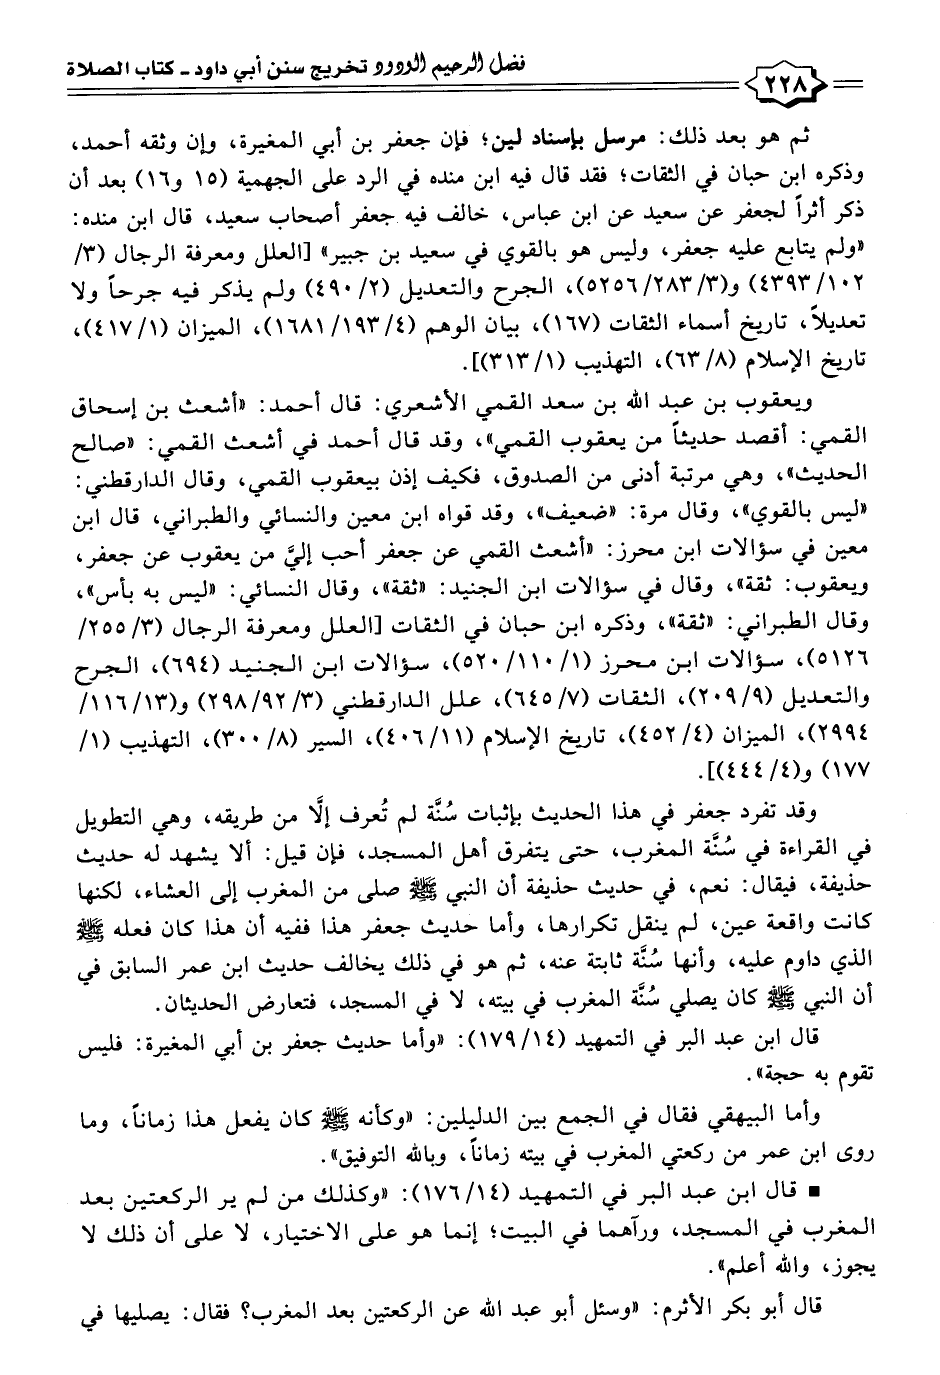 فضل الرحيم الودود تخريج سنن أبي داود - كتاب الصلاة
٢٢٨
ثم هو بعد ذلك: مرسل بإسناد لين؛ فإن جعفر بن أبي المغيرة، وإن وثقه أحمد،
وذكره ابن حبان في الثقات؛ فقد قال فيه ابن منده في الرد على الجهمية (١٥ و١٦) بعد أن
ذكر أثراً لجعفر عن سعيد عن ابن عباس، خالف فيه جعفر أصحاب سعيد، قال ابن منده:
«ولم يتابع عليه جعفر، وليس هو بالقوي في سعيد بن جبير» [العلل ومعرفة الرجال (٣/
٤٣٩٣/١٠٢) و(٥٢٥٦/٢٨٣/٣)، الجرح والتعديل (٤٩٠/٢) ولم يذكر فيه جرحاً ولا
تعديلاً، تاريخ أسماء الثقات (١٦٧)، بيان الوهم (١٦٨١/١٩٣/٤)، الميزان (٤١٧/١)،
تاريخ الإسلام (٦٣/٨)، التهذيب (٣١٣/١)].
ويعقوب بن عبد الله بن سعد القمي الأشعري: قال أحمد: «أشعث بن إسحاق
القمي: أقصد حديثاً من يعقوب القمي»، وقد قال أحمد في أشعث القمي: «صالح
الحديث»، وهي مرتبة أدنى من الصدوق، فكيف إذن بيعقوب القمي، وقال الدارقطني:
«ليس بالقوي»، وقال مرة: «ضعيف»، وقد قواه ابن معين والنسائي والطبراني، قال ابن
معين في سؤالات ابن محرز: «أشعث القمي عن جعفر أحب إليَّ من يعقوب عن جعفر،
ويعقوب: ثقة»، وقال في سؤالات ابن الجنيد: «ثقة»، وقال النسائي: «ليس به بأس»،
وقال الطبراني: «ثقة»، وذكره ابن حبان في الثقات [العلل ومعرفة الرجال (٣/ ٢٥٥/
٥١٢٦)، سؤالات ابن محرز (٥٢٠/١١٠/١)، سؤالات ابن الجنيد (٦٩٤)، الجرح
والتعديل (٢٠٩/٩)، الثقات (٦٤٥/٧)، علل الدارقطني (٢٩٨/٩٢/٣) و(١١٦/١٣/
٢٩٩٤)، الميزان (٤٥٢/٤)، تاريخ الإسلام (٤٠٦/١١)، السير (٣٠٠/٨)، التهذيب (١/
١٧٧) و(٤٤٤/٤)].
وقد تفرد جعفر في هذا الحديث بإثبات سُنَّة لم تُعرف إلَّا من طريقه، وهي التطويل
في القراءة في سُنَّة المغرب، حتى يتفرق أهل المسجد، فإن قيل: ألا يشهد له حديث
حذيفة، فيقال: نعم، في حديث حذيفة أن النبي ﷺ صلى من المغرب إلى العشاء، لكنها
كانت واقعة عين، لم ينقل تكرارها، وأما حديث جعفر هذا ففيه أن هذا كان فعله ﷺ
الذي داوم عليه، وأنها سُنَّة ثابتة عنه، ثم هو في ذلك يخالف حديث ابن عمر السابق في
أن النبي ﷺ كان يصلي سُنَّة المغرب في بيته، لا في المسجد، فتعارض الحديثان.
قال ابن عبد البر في التمهيد (١٧٩/١٤): «وأما حديث جعفر بن أبي المغيرة: فليس
تقوم به حجة».
وأما البيهقي فقال في الجمع بين الدليلين: «وكأنه ﷺ كان يفعل هذا زماناً، وما
روى ابن عمر من ركعتي المغرب في بيته زماناً، وبالله التوفيق».
▪ قال ابن عبد البر في التمهيد (١٧٦/١٤): «وكذلك من لم ير الركعتين بعد
المغرب في المسجد، ورآهما في البيت؛ إنما هو على الاختيار، لا على أن ذلك لا
يجوز، والله أعلم».
قال أبو بكر الأثرم: «وسئل أبو عبد الله عن الركعتين بعد المغرب؟ فقال: يصليها في